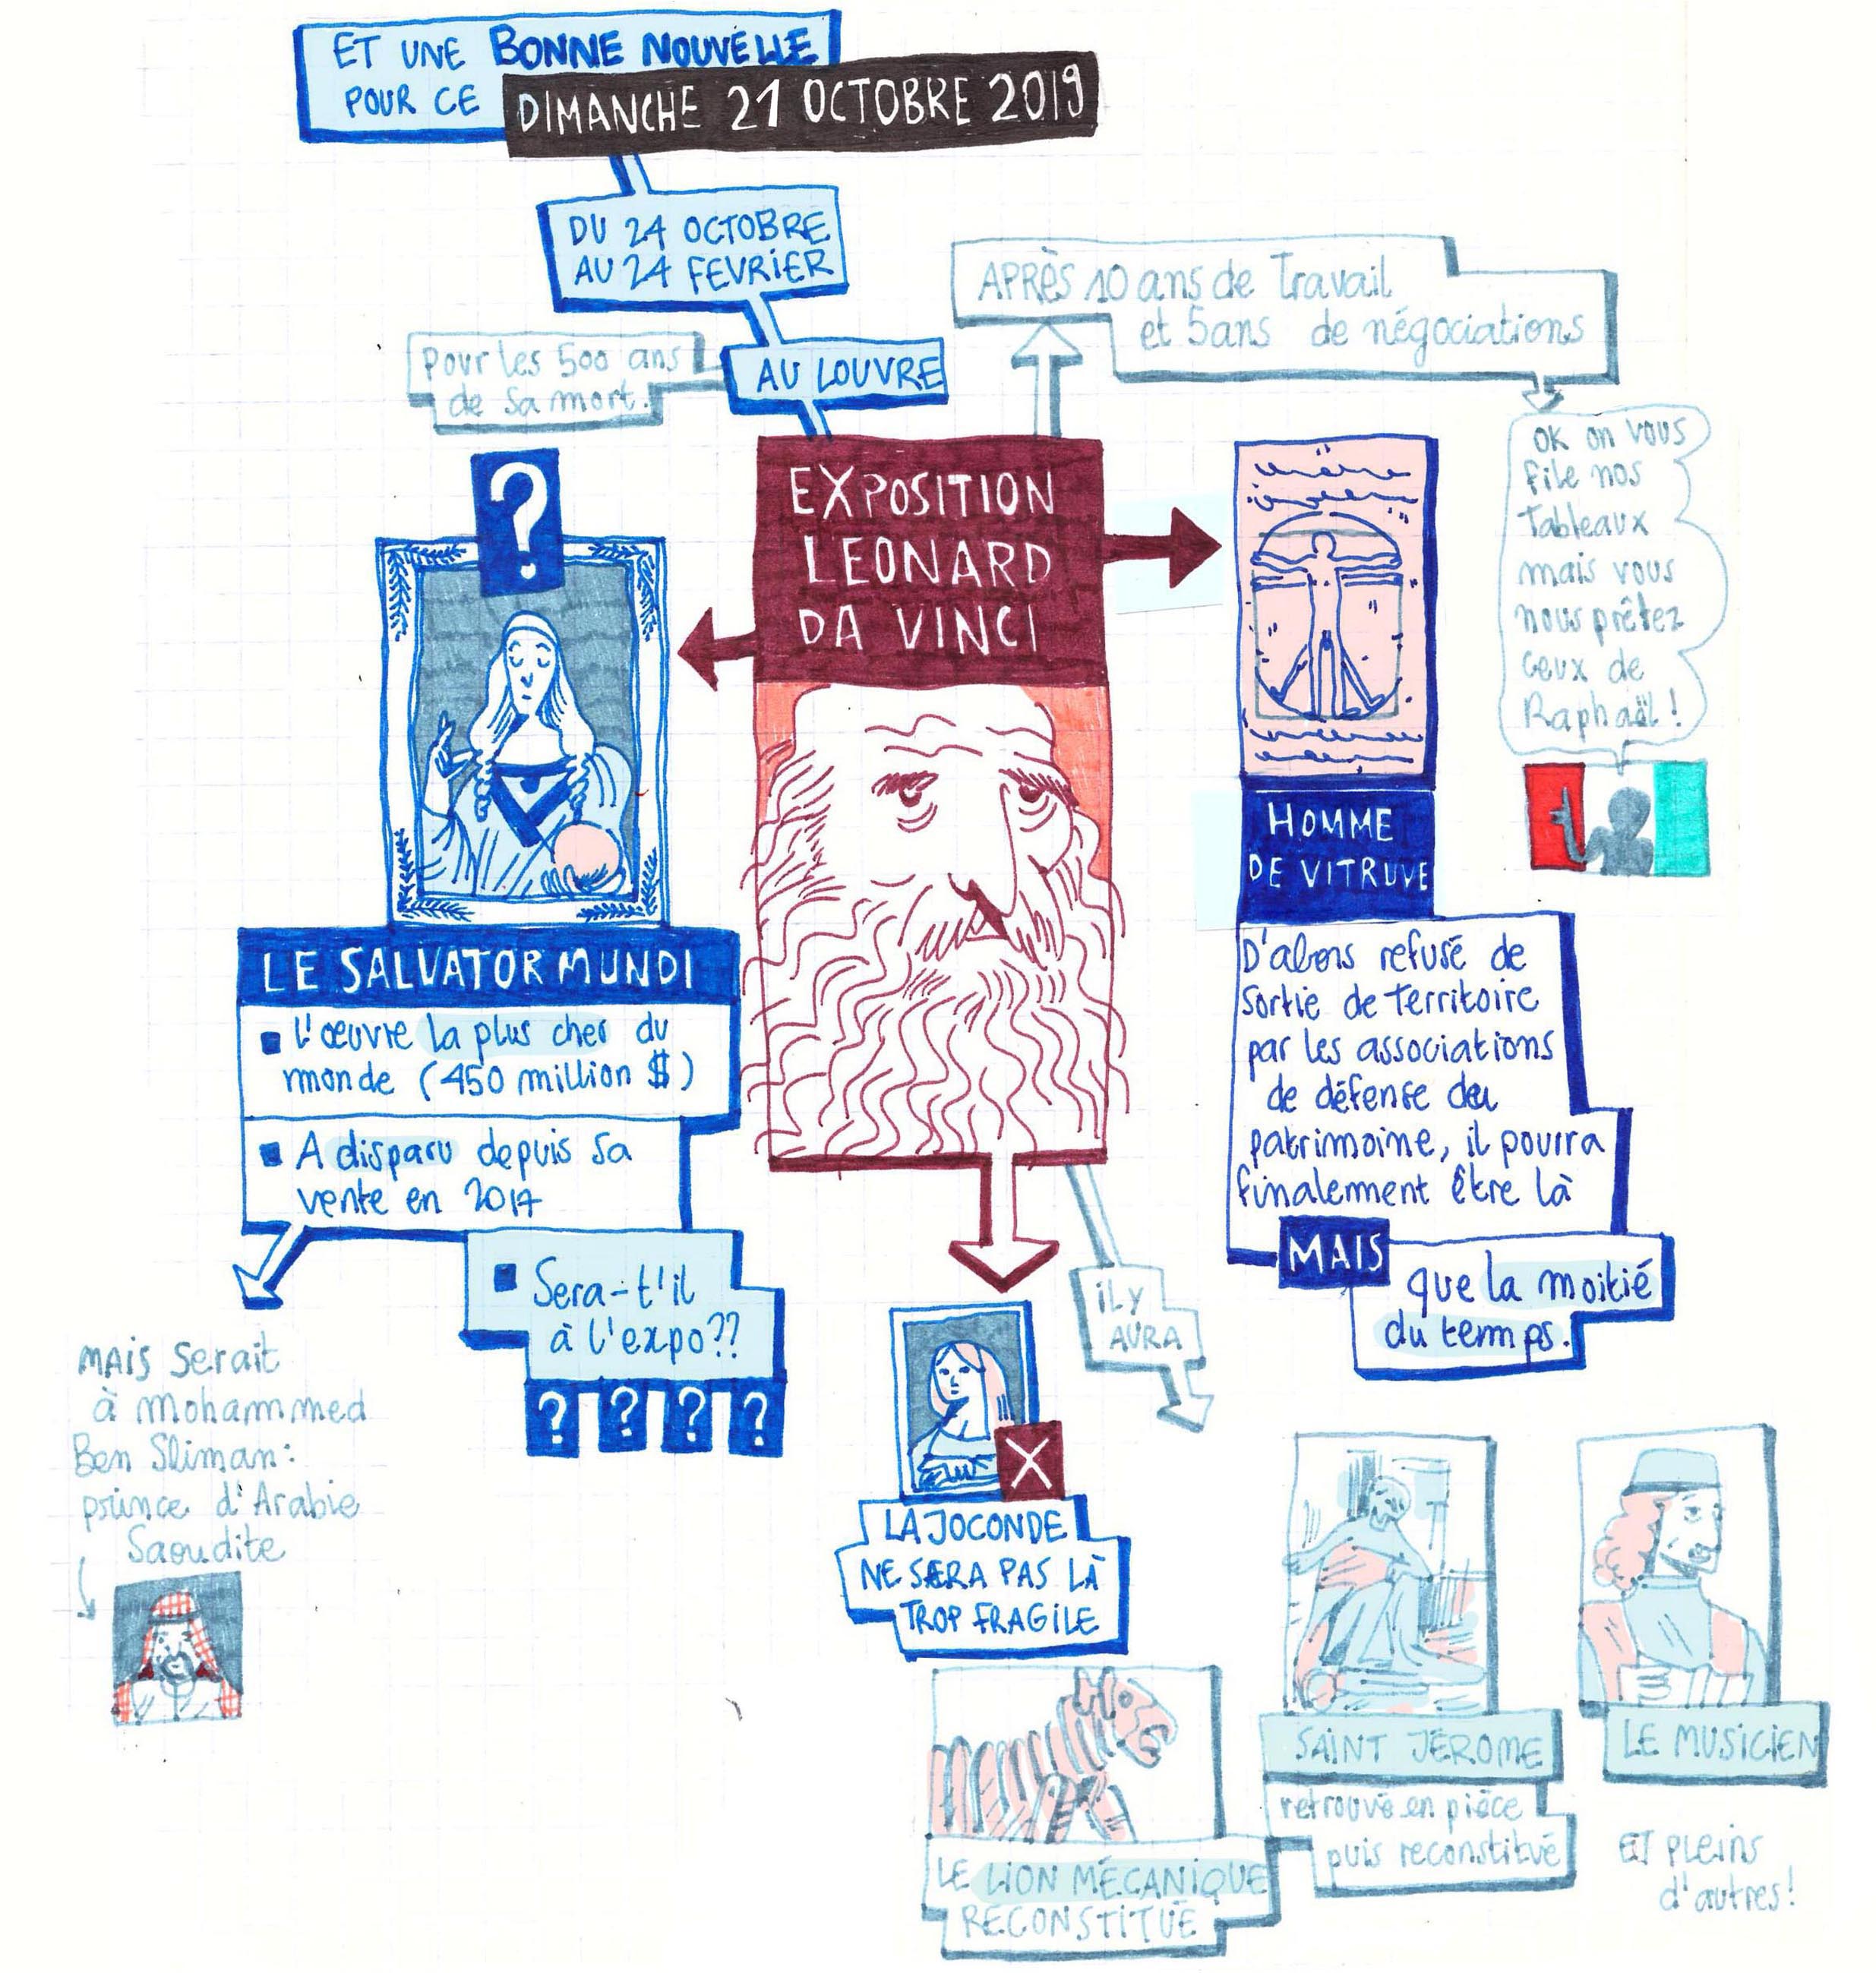 ET UNE BONNE NOUVELLE
POUR CE
DIMANCHE 21 OCTOBRE 2019
DU 24 OCTOBRE
AU 24 FEVRIER
AU LOUVRE
Pour les 500 ans
de sa mort.
APRÈS 10 ans de Travail
et 5 ans de négociations
OK on vous
file nos
Tableaux
mais vous
nous prêtez
ceux de
Raphaël !
EXPOSITION
LEONARD
DA VINCI
?
LE SALVATOR MUNDI
L'œuvre la plus cher du
monde (450 million $)
A disparu depuis sa
vente en 2017
Sera-t'il
à l'expo??
? ? ? ?
MAIS Serait
à Mohammed
Ben Sliman:
prince d'Arabie
Saoudite
HOMME
DE VITRUVE
D'abors refusé de
Sortie de Territoire
par les associations
de défense du
patrimoine, il pourra
finalement être là
MAIS
que la moitié
du temps.
IL Y
AURA
X
LA JOCONDE
NE SERA PAS LÀ
TROP FRAGILE
LE LION MÉCANIQUE
RECONSTITUÉ
SAINT JÉROME
retrouvé en pièce
puis reconstitué
LE MUSICIEN
ET pleins
d'autres!